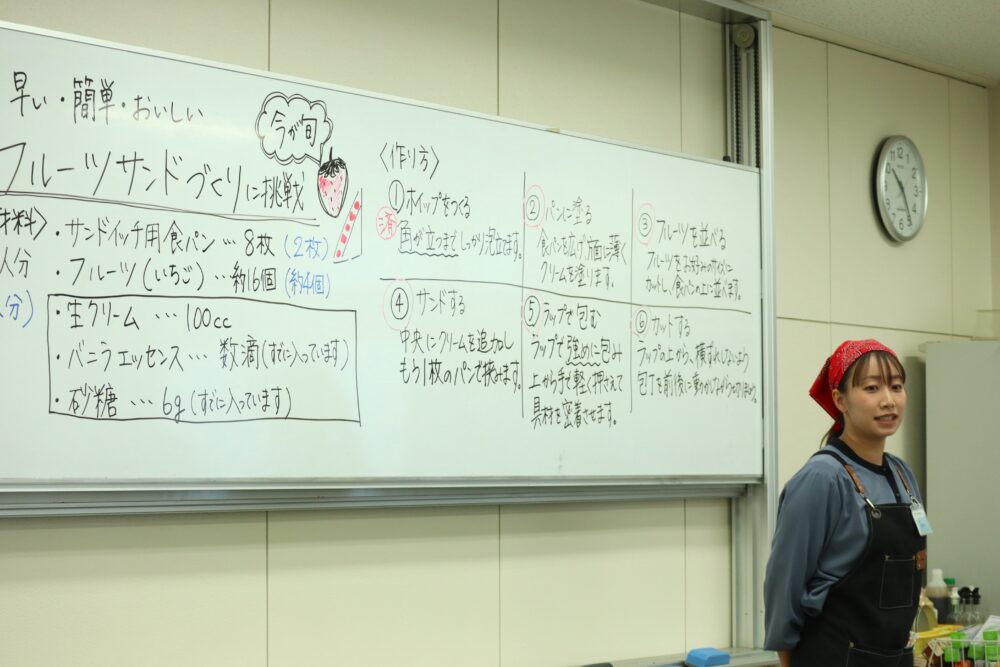 早い・簡単・おいしい
今が旬
フルーツサンドづくりに挑戦
材料〉
人分
人分)
・サンドイッチ用食パン…8枚(2枚)
・フルーツ(いちご)…約16個(約4個)
・生クリーム…100cc
・バニラエッセンス…数滴(すでに入っています)
・砂糖…6g(すでに入っています)
〈作り方〉
①ホイップをつくる
済
角が立つまでしっかり泡立ます。
②パンに塗る
食パンを広げ、片面に薄く
クリームを塗ります。
③フルーツを並べる
フルーツをお好みのサイズに
カットし、食パンの上に並べます。
④サンドする
中央にクリームを追加し
もう1枚のパンで挟みます。
⑤ラップで包む
ラップで強めに包み
上から手で軽く押さえて
具材を密着させます。
⑥カットする
ラップの上から、横ずれしないよう
包丁を前後に動かしながら